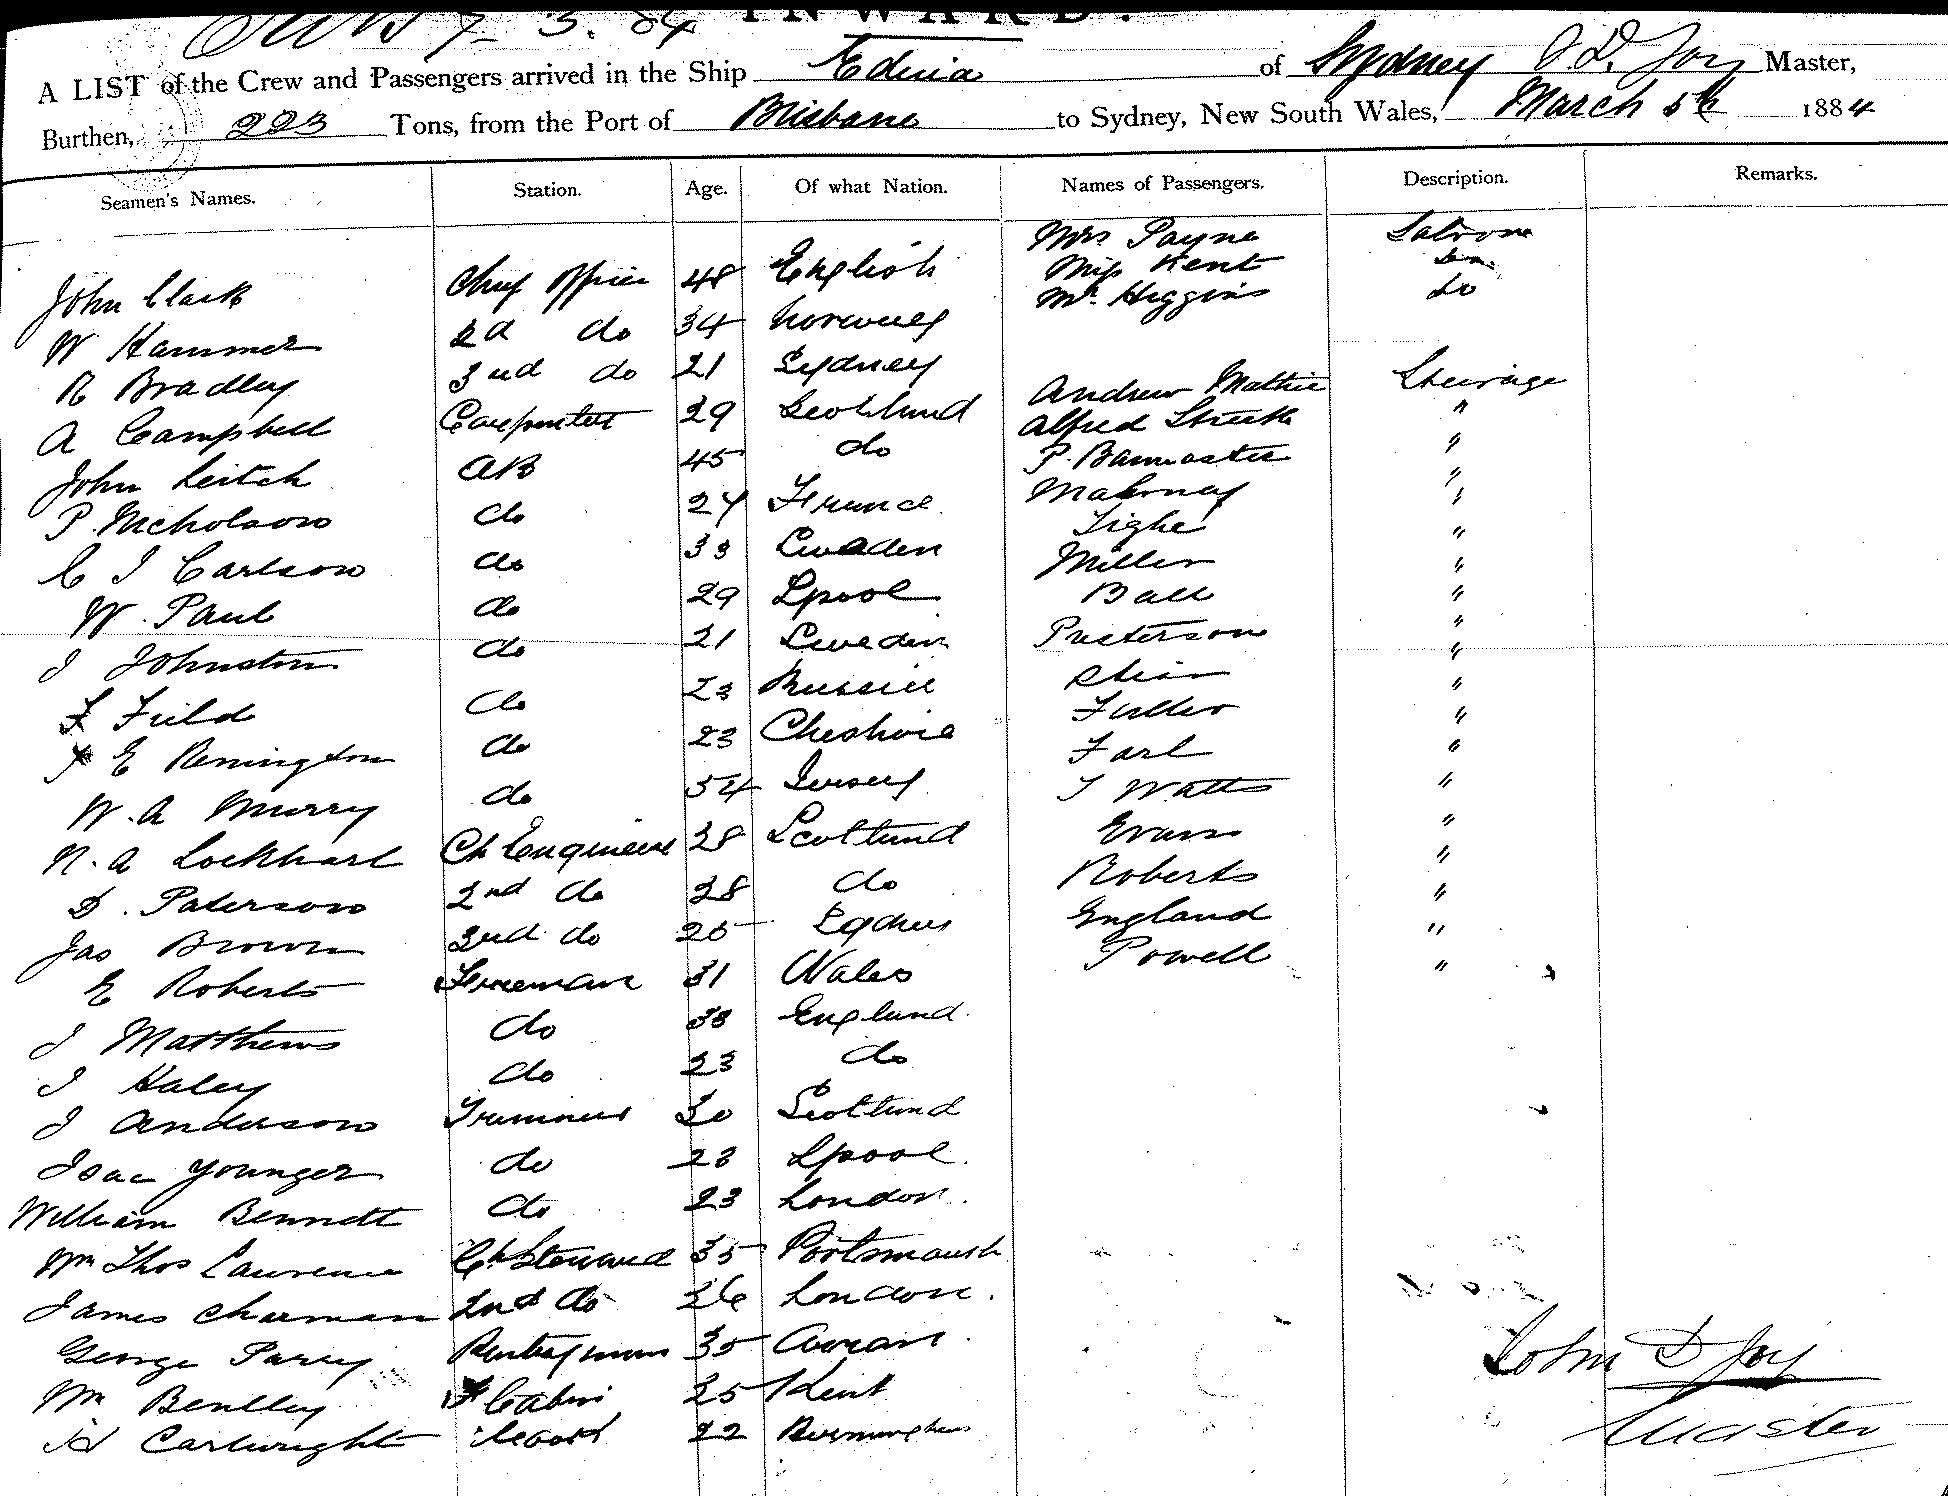 7 3. 84 INWARD.
A LIST of the Crew and Passengers arrived in the Ship Edina of Sydney J. D. Joy Master,
Burthen, 223 Tons, from the Port of Brisbane to Sydney, New South Wales, March 5th 1884
Seamen's Names. Station. Age. Of what Nation. Names of Passengers. Description. Remarks.
Mrs Payne Saloon
John Clark Chief Officer 48 English Miss Kent do
Mr. Higgins do
W Hammer 2d do 34 Norway
R Bradley 3rd do 21 Sydney Andrew Mathie Steerage
A Campbell Carpenter 29 Scotland Alfred "
John Leitch AB 45 do P. "
P. Nicholson do 24 France Mahoney "
Tighe "
C J Carlson do 33 Sweden Miller "
W. Paul do 29 Lpool Ball "
J Johnston do 21 Sweden Patterson "
F Field do 23 Russia "
Fuller "
E Remington do 23 Cheshire Farl "
W. A Murry do 54 Jersey T Watts "
N. A Lockhart Ch Engineer 38 Scotland Evans "
D. Paterson 2nd do 38 do Roberts "
Jas Brown 3rd do 25 Sydney England "
E Roberts Fireman 31 Wales Powell "
J Matthews do 38 England
J Haley do 23 do
J Anderson Trimmer 30 Scotland
Isac Younger do 23 Lpool.
William Bennett do 23 London.
Wm Thos Lawrence Ch Steward 35 Portsmouth
James Charman 2nd do 36 London.
George Parry Pantryman 35 John D Joy
Wm Bentley F Cabin 25 Kent
H Cartwright 22 Birmingham Master